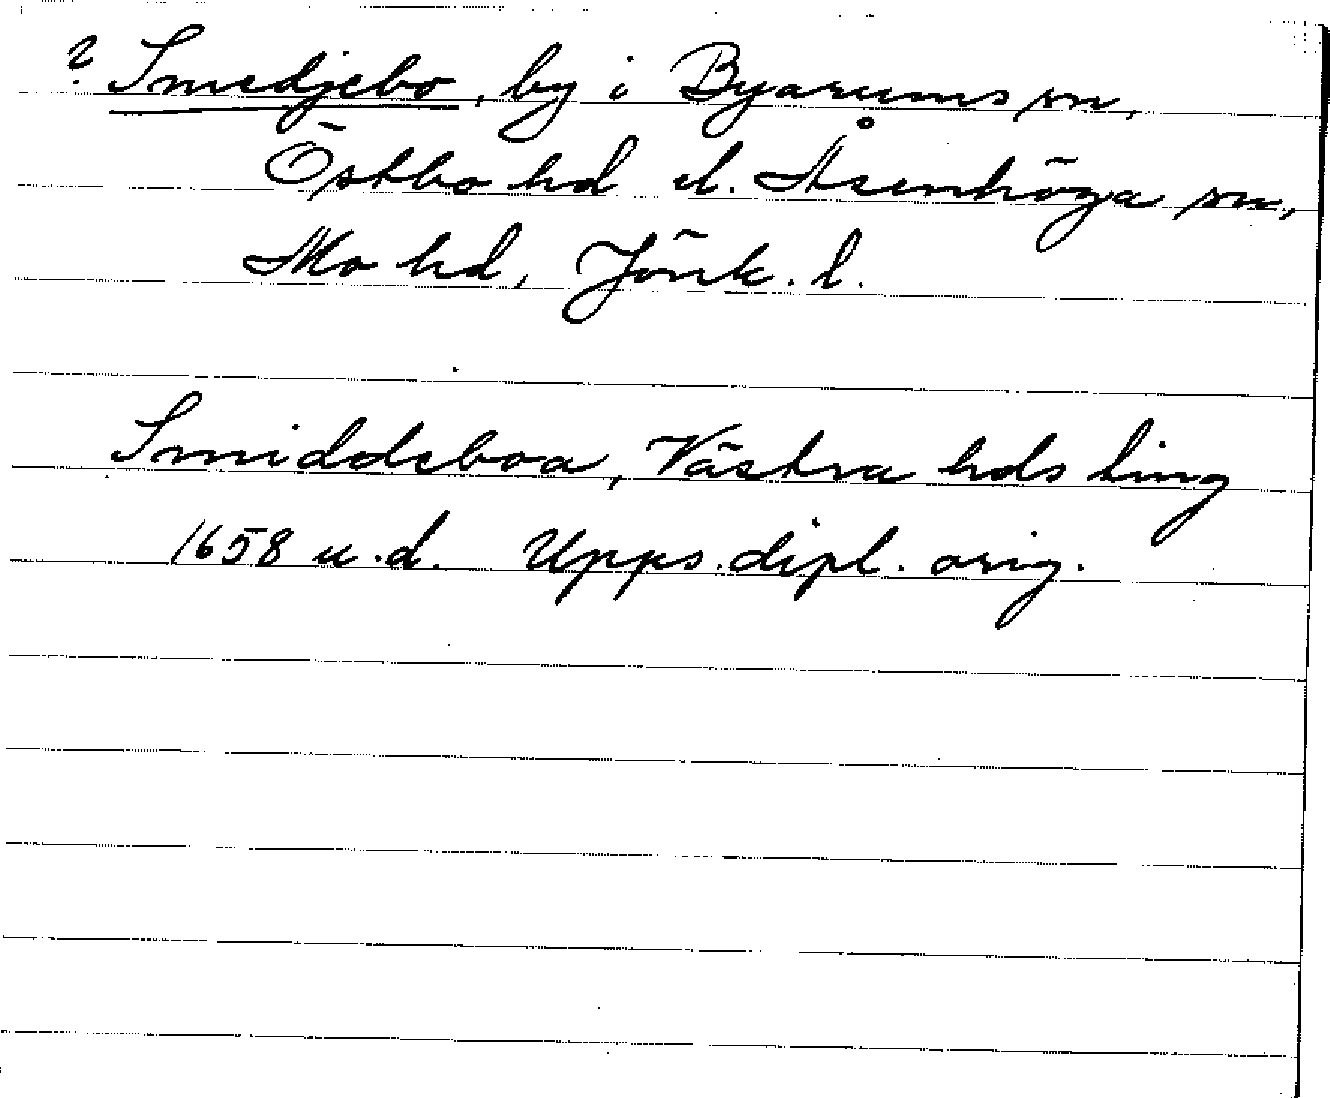 ? Smedjebo, by i Byarums sn,
Östbo hd el. Åsenhöga sn,
Mo hd, Jönk. l.
Smiddeboa, Västra hds ting
1658 u.d. Upps. dipl. orig.